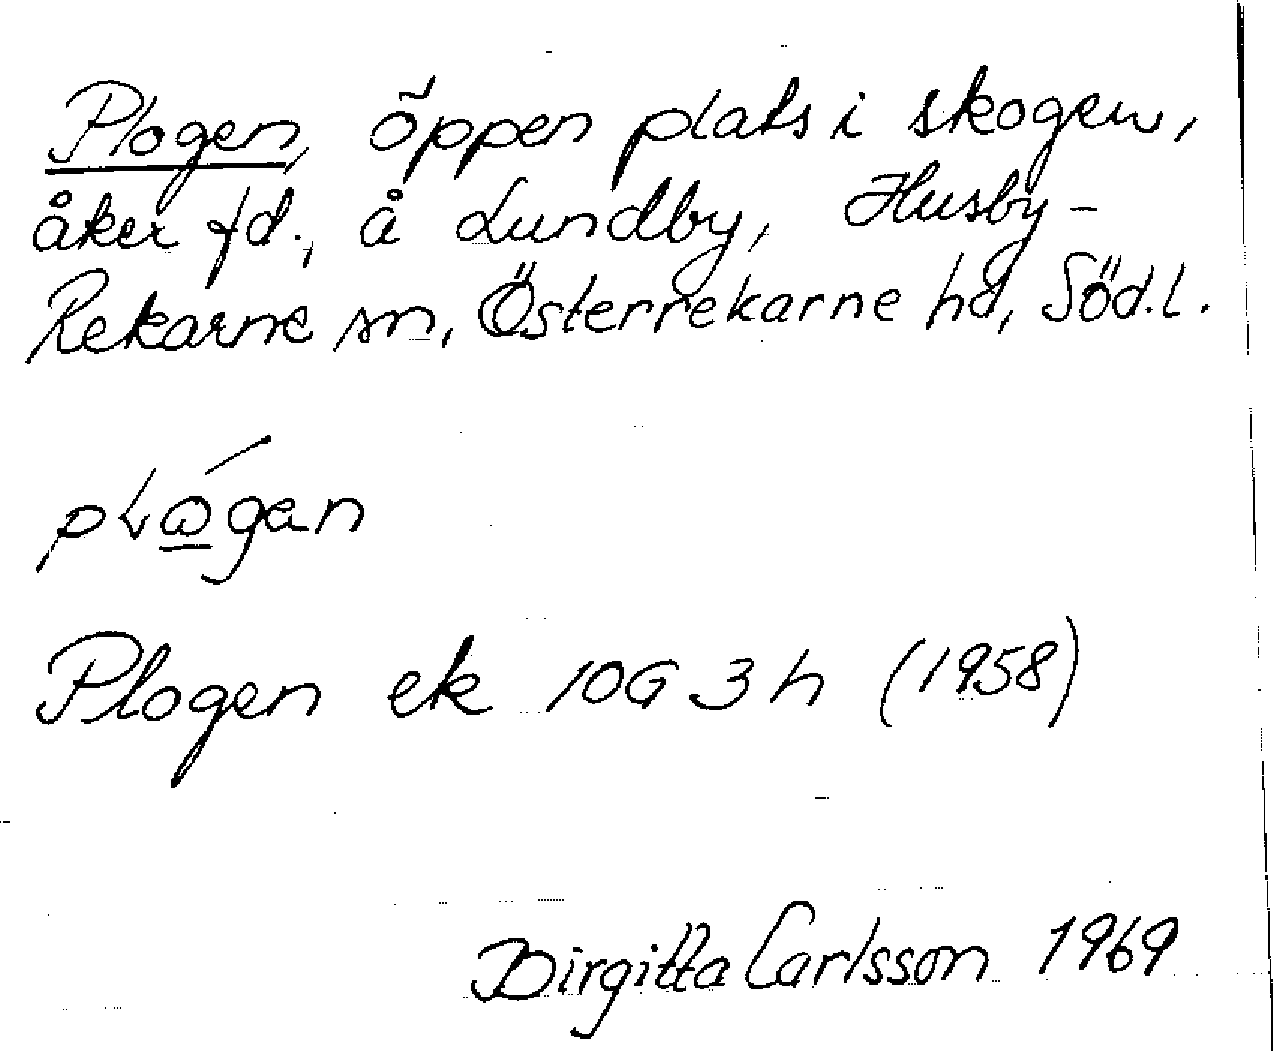 Plogen, öppen plats i skogen,
åker fd., å Lundby, Husby-
Rekarne sn, Österrekarne hd, Söd.l.
pLώ̲gan
Plogen ek 10G 3h (1958)
Birgitta Carlsson 1969